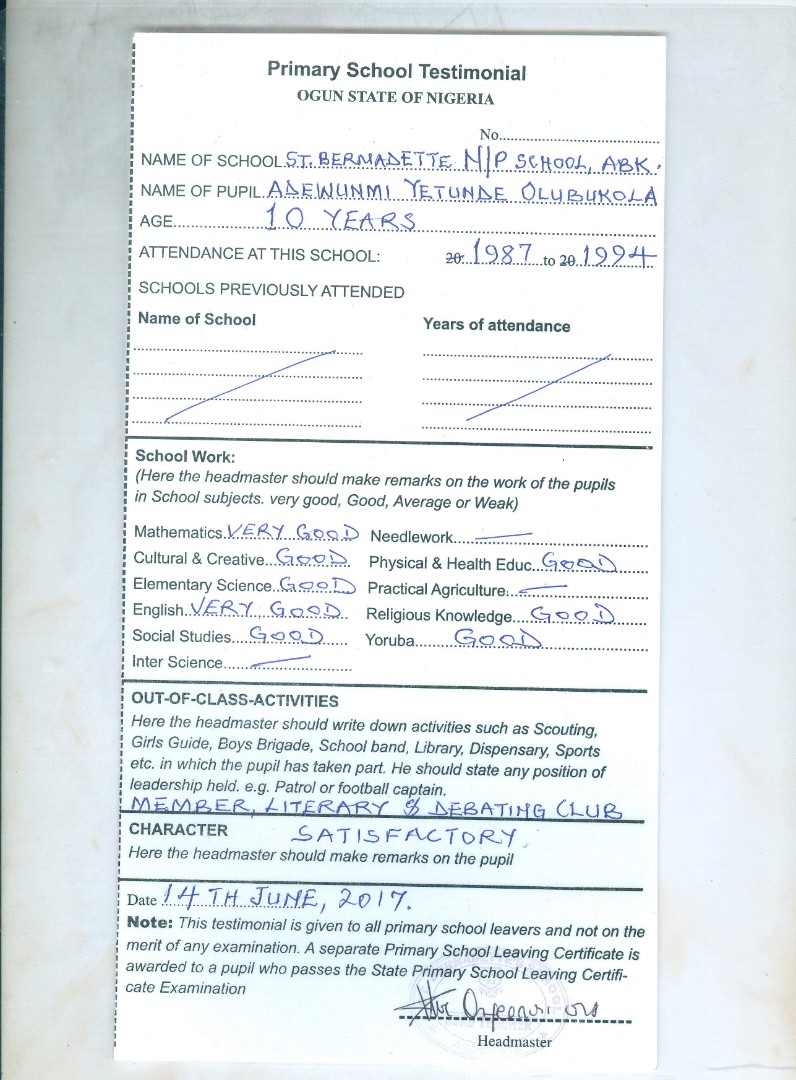 Primary School Testimonial
OGUN STATE OF NIGERIA
No...............
NAME OF SCHOOL ST. BERMADETTE N/P SCHOOL, ABK.
NAME OF PUPIL ADEWUNMI YETUNDE OLUBUKOLA
AGE 10 YEARS
ATTENDANCE AT THIS SCHOOL: 20 1987 to 20 1994
SCHOOLS PREVIOUSLY ATTENDED
Name of School Years of attendance
School Work:
(Here the headmaster should make remarks on the work of the pupils
in School subjects. very good, Good, Average or Weak)
Mathematics VERY GOOD Needlework
Cultural & Creative GOOD Physical & Health Educ. GOOD
Elementary Science GOOD Practical Agriculture
English VERY GOOD Religious Knowledge GOOD
Social Studies GOOD Yoruba GOOD
Inter Science
OUT-OF-CLASS-ACTIVITIES
Here the headmaster should write down activities such as Scouting,
Girls Guide, Boys Brigade, School band, Library, Dispensary, Sports
etc. in which the pupil has taken part. He should state any position of
leadership held. e.g. Patrol or football captain.
MEMBER, LITERARY & DEBATING CLUB
CHARACTER SATISFACTORY
Here the headmaster should make remarks on the pupil
Date 14TH JUNE, 2017.
Note: This testimonial is given to all primary school leavers and not on the
merit of any examination. A separate Primary School Leaving Certificate is
awarded to a pupil who passes the State Primary School Leaving Certifi-
cate Examination
Headmaster